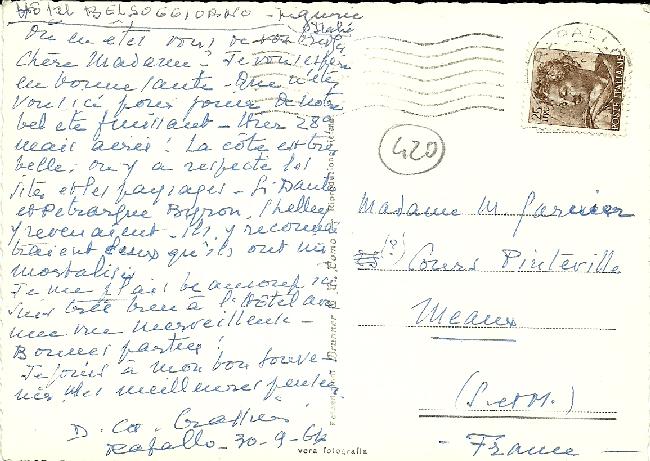 Hôtel BELSOGGIORNO - Ligurie
Italie
Où en êtes vous de vos
Chère Madame - Je vous espère
en bonne santé - Que n'êtes
vous ici pour jouir de notre
bel été finissant - Hier 28°
mais aéré! La côte est très
belle; on y a respecté les
sites et les paysages - Si Dante
et Petrarque Byron, Shelley
y revenaient - ils y reconnai
traient ceux qu'ils ont im
mortalisés
Je me plais beaucoup ici
suis très bien à l'Hôtel avec
une vue merveilleuse -
Bonnes parties!
Je joins à mon bon souve-
nir mes meilleures pensées.
D. Co.
Rapallo - 30-9-64
420
Madame M Garnier
(?)
Cours Pinteville
Meaux
(S.et M.)
- France -
RAPALLO
POSTE ITALIANE
vera fotografia